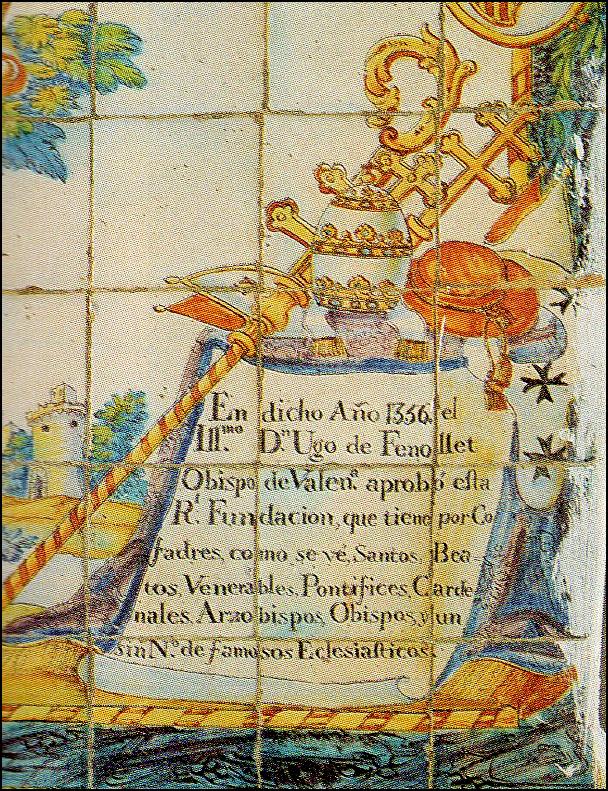 En dicho Año 1356. el
Ill.mo D.n Ugo de Fenollet
Obispo de Valen.a aprobó esta
R.l Fundacion, que tiene por Co
fadres, como se vé, Santos, Bea-
tos, Venerables, Pontifices, Carde-
nales, Arzobispos, Obispos, y un
sin N.o de famosos Eclesiasticos.